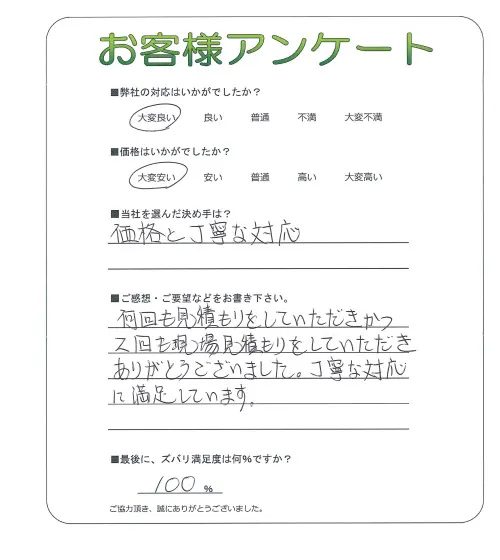 お客様アンケート
■弊社の対応はいかがでしたか？
大変良い 良い 普通 不満 大変不満
■価格はいかがでしたか？
大変安い 安い 普通 高い 大変高い
■当社を選んだ決め手は？
価格と丁寧な対応
■ご感想・ご要望などをお書き下さい。
何回も見積もりをしていただきかつ
2回も現場見積もりをしていただき
ありがとうございました。丁寧な対応
に満足しています。
■最後に、ズバリ満足度は何%ですか？
100 %
ご協力頂き、誠にありがとうございました。